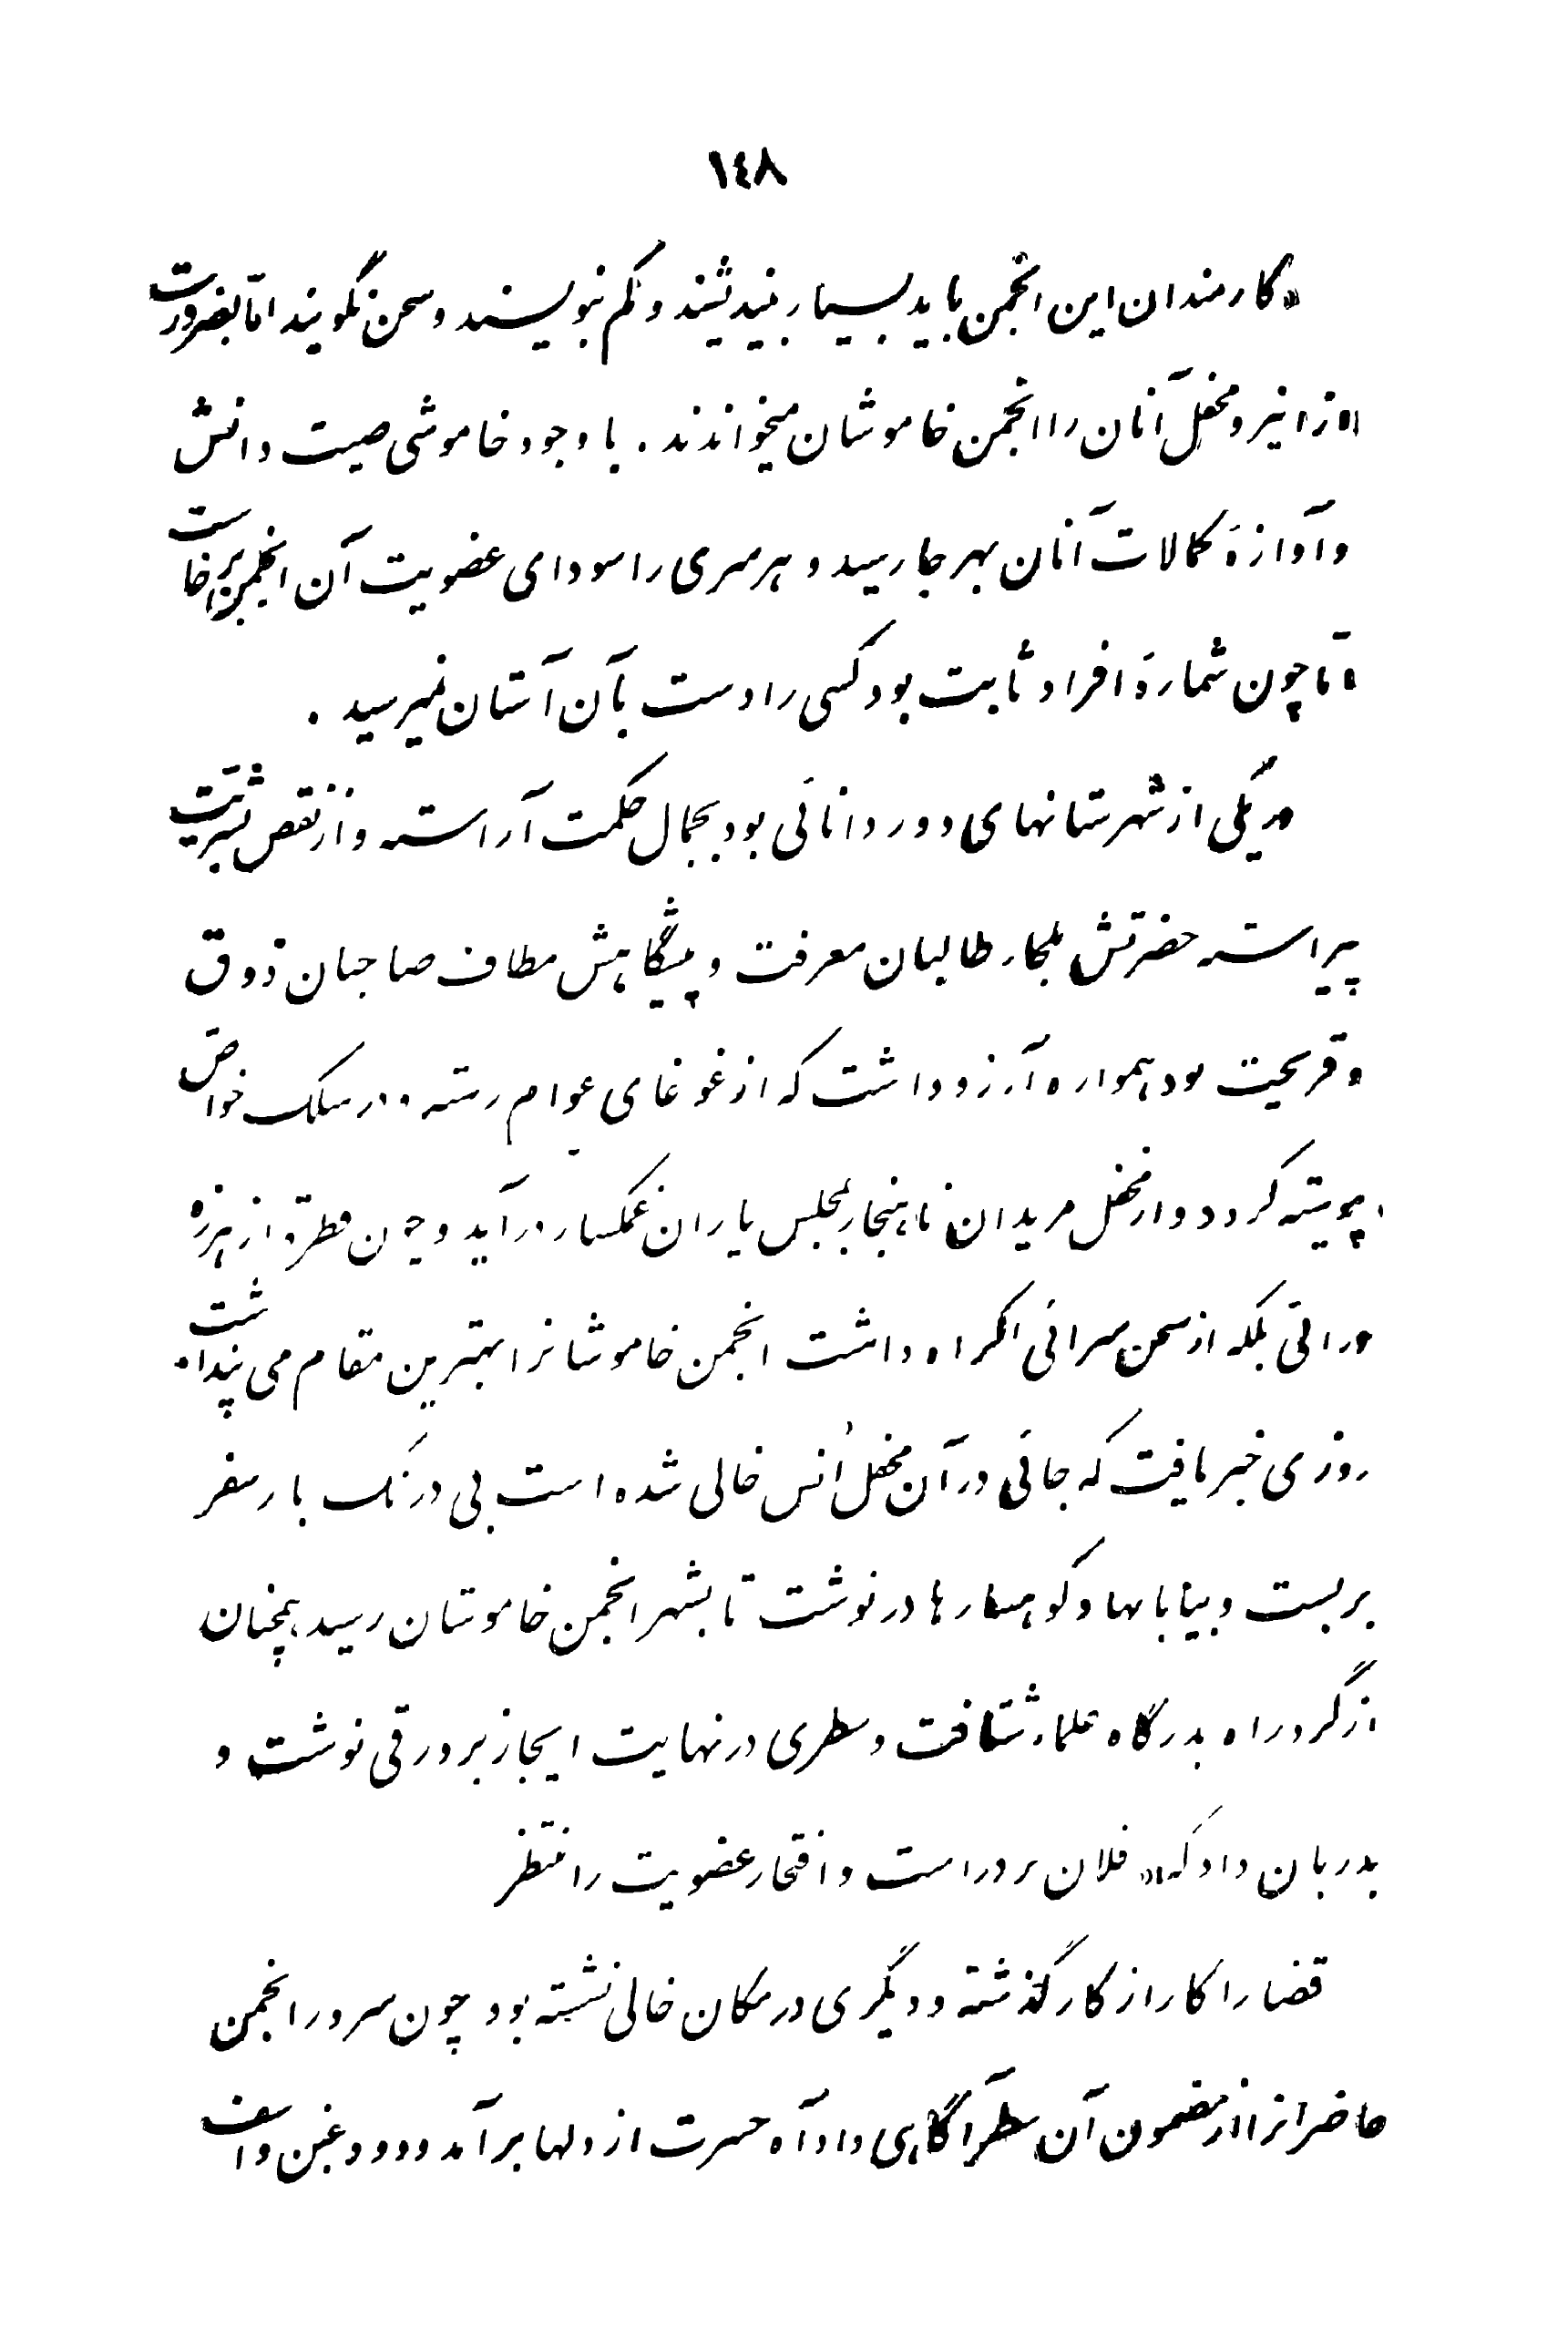 ١٤٨
«کارمندان این انجمن باید بسیار بیندیشند و کم بنویسند و سخن نگویند اما بضرورت»
ازاینرو محفل آنان را انجمن خاموشان میخواندند. با وجود خاموشی صیت دانش
و آوازهٔ کمالات آنان بهر جا رسید و هر سری را سودای عضویت آن انجمن برخاست
اما چون شمارهٔ افراد ثابت بود کسی را دست بآن آستان نمیرسید.
در یکی از شهرستانهای دور دانائی بود بجمال حکمت آراسته و از نقص بشریت
پیراسته حضرتش ملجاء طالبان معرفت و پیشگاهش مطاف صاحبان ذوق
و قریحت بود همواره آرزو داشت که از غوغای عوام رسته در سلک خواص
پیوسته گردد و از محفل مریدان ناهنجار بمجلس یاران غمگسار درآید و چون فطرة از هرزه
درائی بلکه از سخن سرائی اکراه داشت انجمن خاموشانرا بهترین مقام می پنداشت.
روزی خبر یافت که جائی در آن محفل اُنس خالی شده است بی درنگ بار سفر
بربست و بیابانها و کوهسارها درنوشت تا بشهر انجمن خاموشان رسید، همچنان
از گرد راه بدرگاه علماء شتافت و سطری در نهایت ایجاز بر ورقی نوشت و
بدربان داد که «فلان بر در است و افتخار عضویت را منتظر
قضا را کار از کار گذشته و دیگری در مکان خالی نشسته بود چون سرور انجمن
حاضرانرا از مضمون آن سطر آگاهی داد آه حسرت از دلها برآمد و دود غبن و اسف